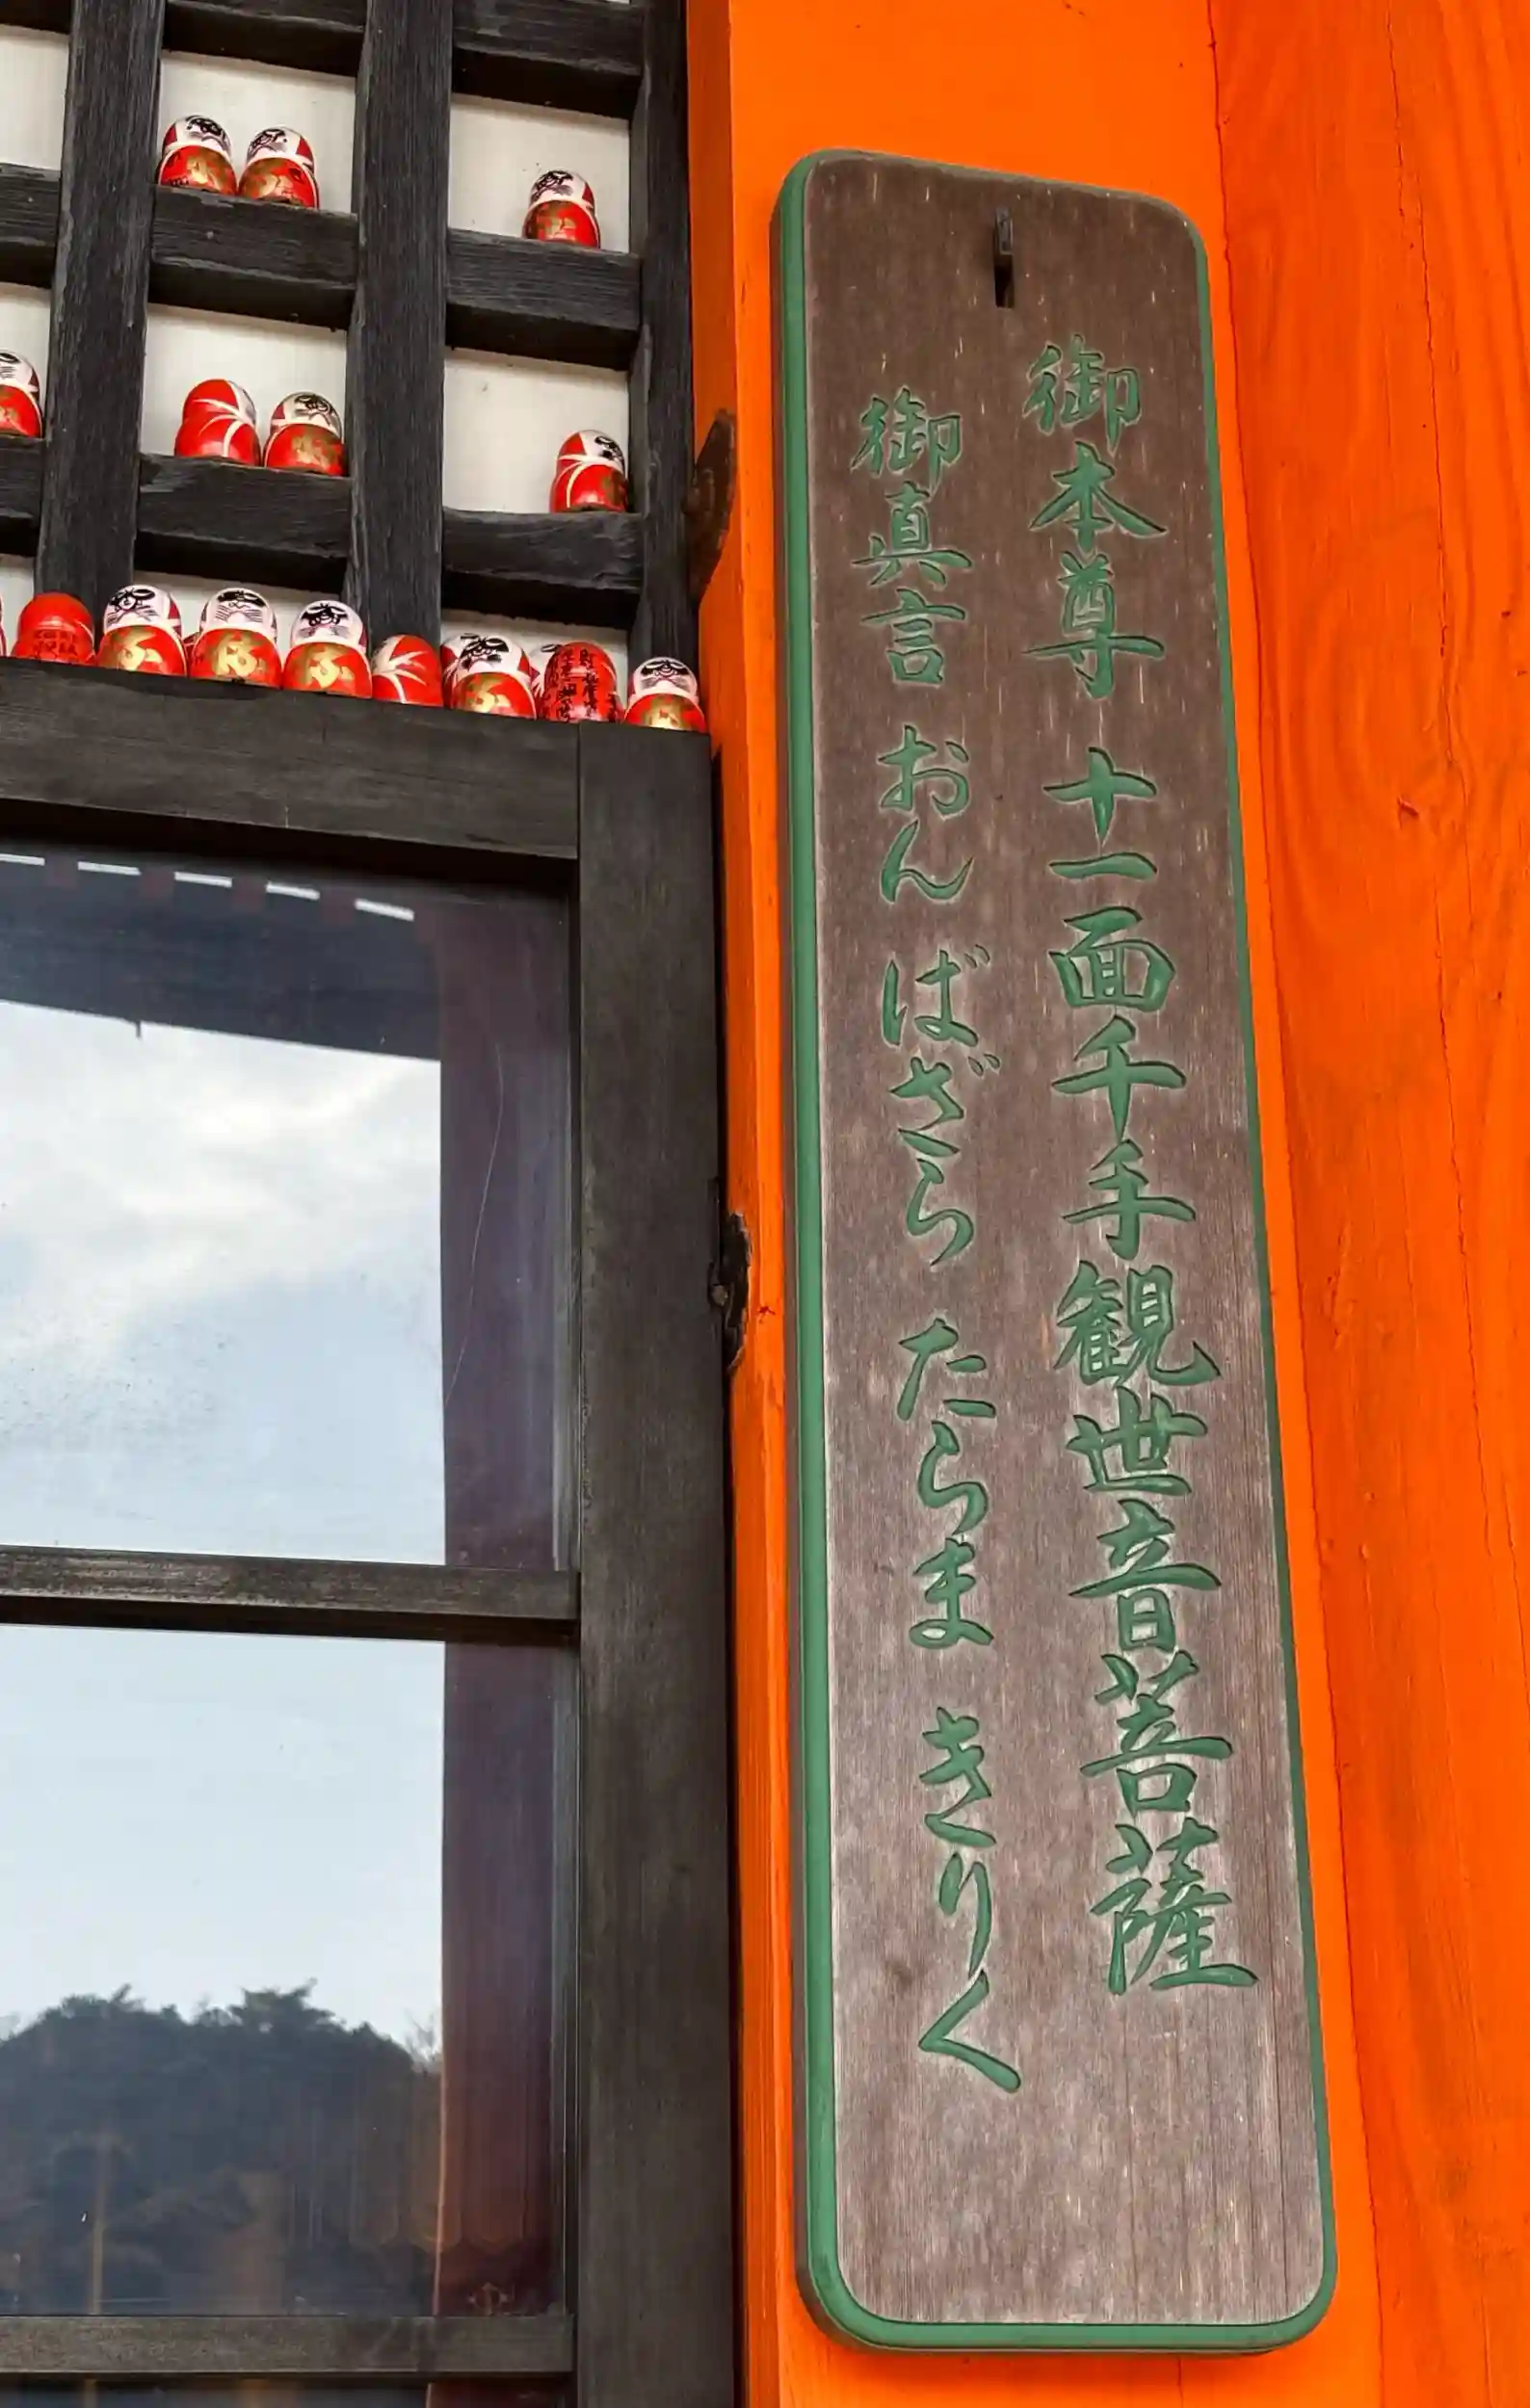 御本尊 十一面千手観世音菩薩
御真言 おん ばざら たらま きりく